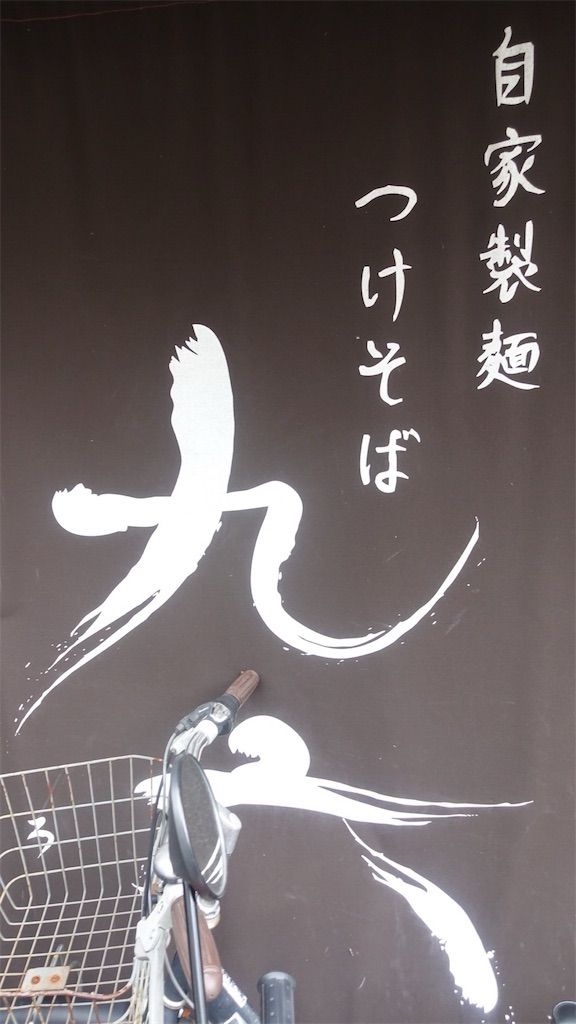 自家製麺
つけそば
九六
ろ